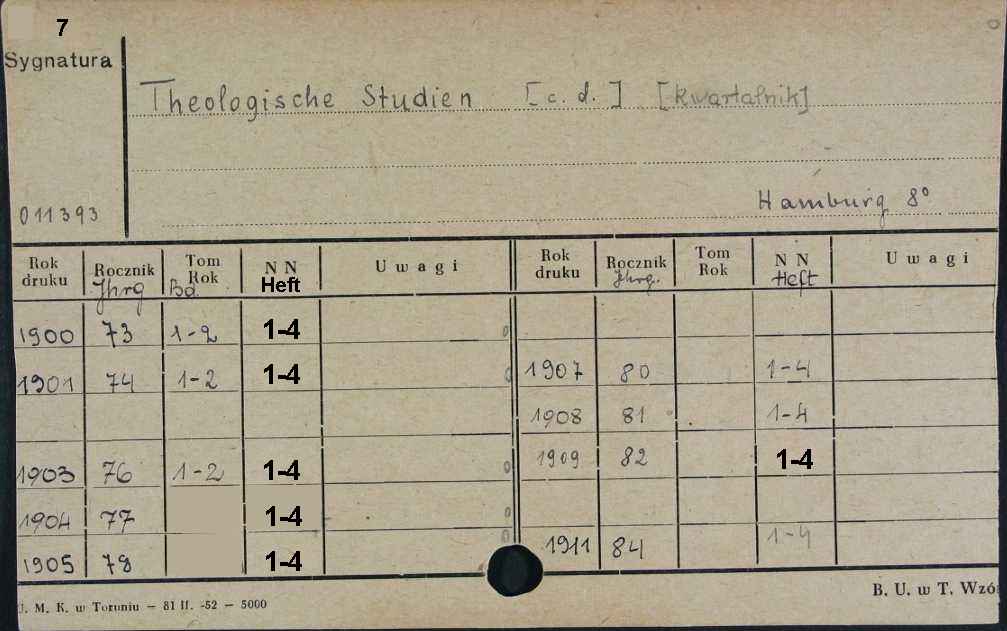 7
Sygnatura
Theologische Studien [c. d.] [kwartalnik]
Hamburg 8°
011393
Rok druku Rocznik Jhrg Tom Rok Bd. NN Heft Uwagi Rok druku Rocznik Jhrg. Tom Rok NN Heft Uwagi
1900 73 1-2 1-4
1901 74 1-2 1-4 1907 80 1-4
1908 81 1-4
1903 76 1-2 1-4 1909 82 1-4
1904 77 1-4
1905 78 1-4 1911 84 1-4
U. M. K. w Toruniu — 81 II. -52 — 5000
B. U. w T. Wzó